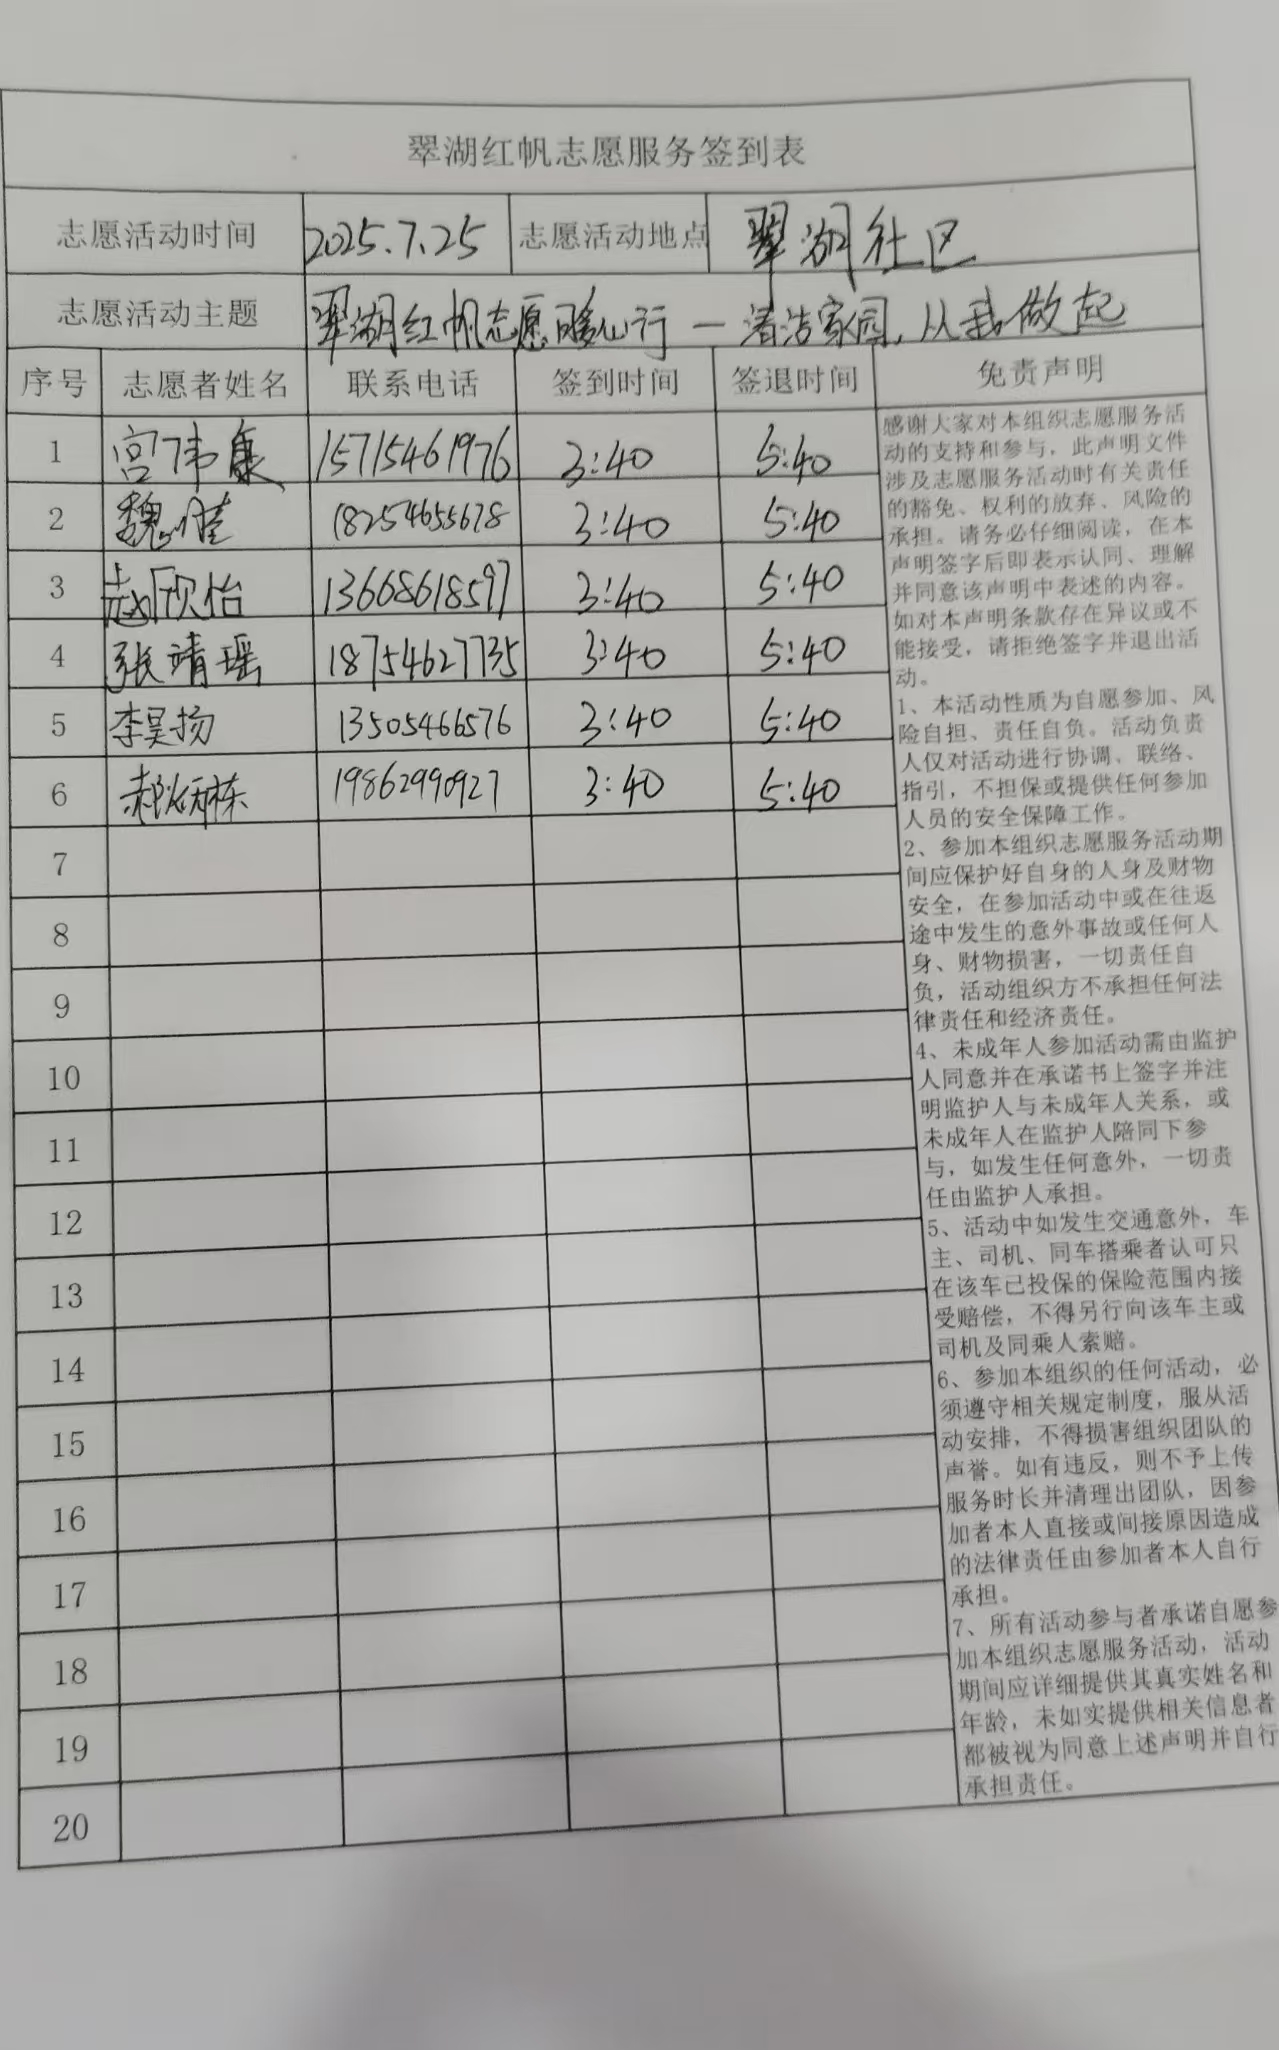 翠湖红帆志愿服务签到表
志愿活动时间 2025.7.25 志愿活动地点 翠湖社区
志愿活动主题 翠湖红帆志愿暖心行—清洁家园,从我做起
序号 志愿者姓名 联系电话 签到时间 签退时间 免责声明
1 宫伟康 15715461976 3:40 5:40
2 魏 18254655678 3:40 5:40
3 赵欣怡 13668618597 3:40 5:40
4 张靖瑶 18754627735 3:40 5:40
5 李昊扬 13505466576 3:40 5:40
6 郝 栋 19862990927 3:40 5:40
7
8
9
10
11
12
13
14
15
16
17
18
19
20
感谢大家对本组织志愿服务活
动的支持和参与,此声明文件
涉及志愿服务活动时有关责任
的豁免、权利的放弃、风险的
承担。请务必仔细阅读,在本
声明签字后即表示认同、理解
并同意该声明中表述的内容。
如对本声明条款存在异议或不
能接受,请拒绝签字并退出活
动。
1、本活动性质为自愿参加、风
险自担、责任自负。活动负责
人仅对活动进行协调、联络、
指引,不担保或提供任何参加
人员的安全保障工作。
2、参加本组织志愿服务活动期
间应保护好自身的人身及财物
安全,在参加活动中或在往返
途中发生的意外事故或任何人
身、财物损害,一切责任自
负,活动组织方不承担任何法
律责任和经济责任。
4、未成年人参加活动需由监护
人同意并在承诺书上签字并注
明监护人与未成年人关系,或
未成年人在监护人陪同下参
与,如发生任何意外,一切责
任由监护人承担。
5、活动中如发生交通意外,车
主、司机、同车搭乘者认可只
在该车已投保的保险范围内接
受赔偿,不得另行向该车主或
司机及同乘人索赔。
6、参加本组织的任何活动,必
须遵守相关规定制度,服从活
动安排,不得损害组织团队的
声誉。如有违反,则不予上传
服务时长并清理出团队,因参
加者本人直接或间接原因造成
的法律责任由参加者本人自行
承担。
7、所有活动参与者承诺自愿参
加本组织志愿服务活动,活动
期间应详细提供其真实姓名和
年龄,未如实提供相关信息者
都被视为同意上述声明并自行
承担责任。